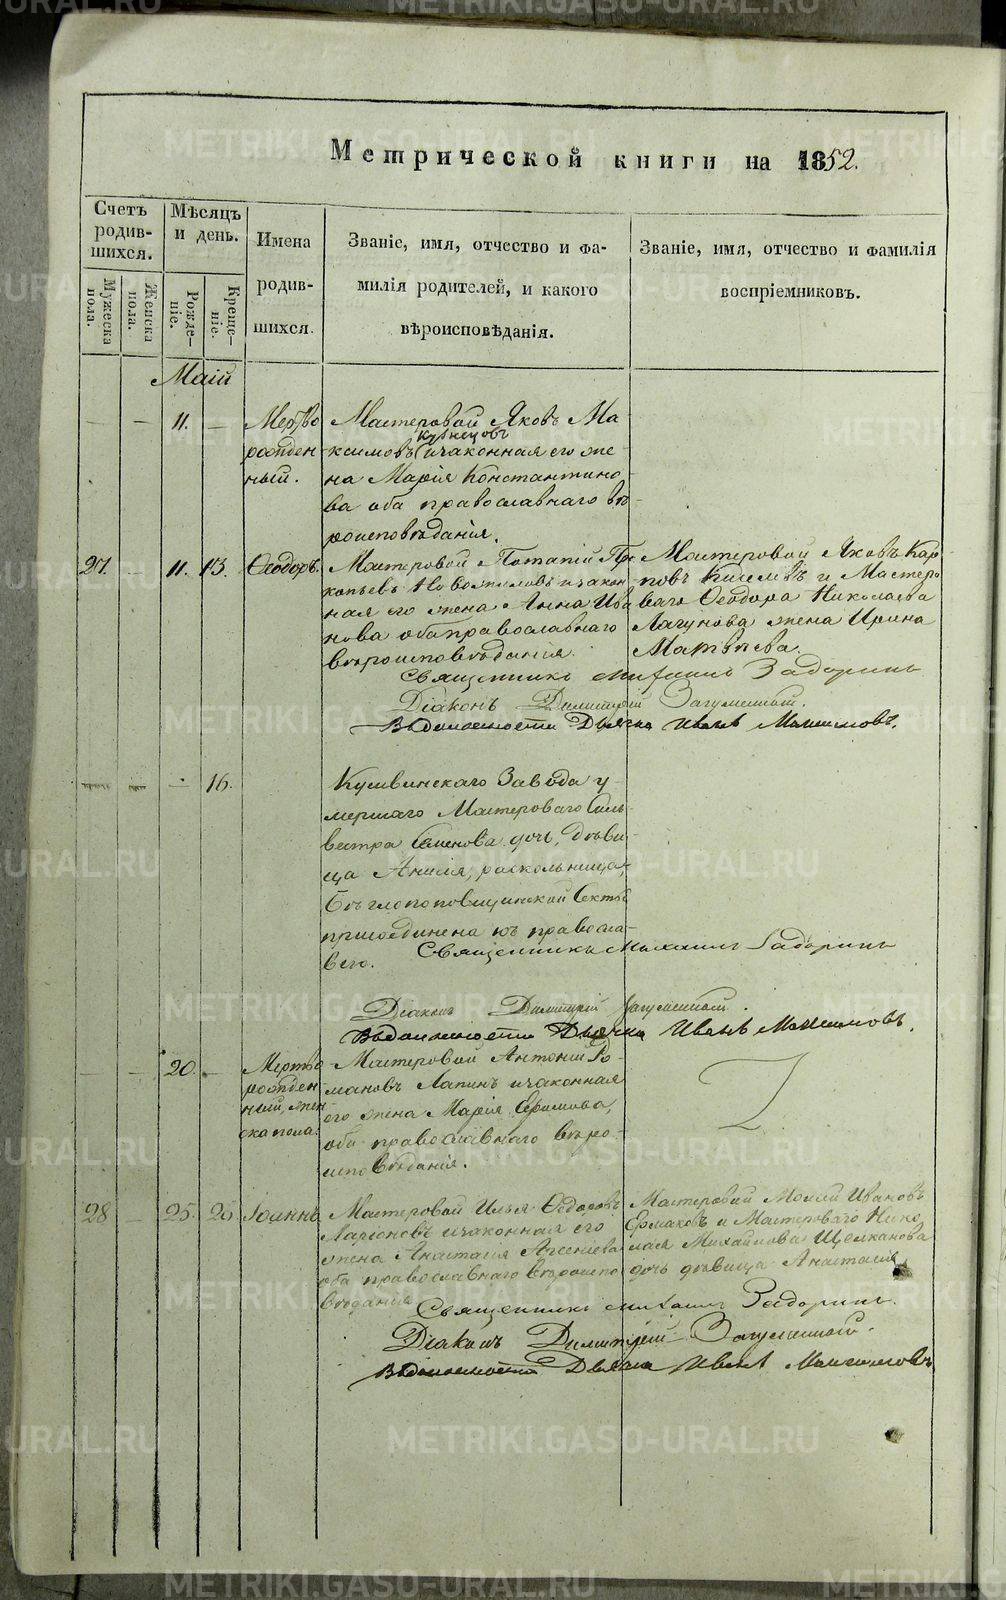 METRIKI.GASO-URAL.RU
Метрической книги на 1852.
Счетъ родив-шихся.
Мужеска пола.
Женска пола.
Мѣсяцъ и день.
Рожде-ніе.
Креще-ніе.
Имена родив-шихся.
Званіе, имя, отчество и фа-
милія родителей, и какого
вѣроисповѣданія.
Званіе, имя, отчество и фамилія
воспріемниковъ.
Маій
— — 11. —
Мертво
рожден-
ный.
Мастеровой Яковъ Ма-
ксимовъ Кузнецовъ и законная его же-
на Марія Константино-
ва оба православнаго вѣ-
роисповѣданія.
27. — 11. 13. Ѳеодоръ.
Мастеровой Потапій Про
копьевъ и закон
ная его жена Анна Ива
нова оба православнаго
вѣроисповѣданія.
Мастеровой Яковъ Кар-
повъ Киселевъ и Мастеро
ваго Ѳеодора Николаева
Лагунова жена Ирина
Матвѣева.
Священникъ Михаилъ Задоринъ
Діаконъ Димитрій Загуменный.
Въ должности Дьячка Иванъ Максимовъ.
— — — 16.
Кушвинскаго Завода у-
мершаго Мастероваго Силь-
вестра Семенова дочь, дѣви-
ца Анисія, раскольница,
Бѣглопоповщинской Секты
присоединена къ правосла-
вію.
Священникъ Михаилъ Задоринъ
Діаконъ Димитрій Загуменный.
Въ должности Дьячка Иванъ Максимовъ.
— — 20. —
Мертво
рожден-
ный, жен-
ска пола.
Мастеровой Антоній Ро-
мановъ Лапинъ и законная
его жена Марія Ефимова,
оба православнаго вѣро-
исповѣданія.
28 — 25. 26. Іоаннъ
Мастеровой Илья Ѳедоровъ
Ларіоновъ и законная его
жена Анастасія Арсеніева
оба православнаго вѣроиспо
вѣданія
Мастеровой Моисей Ивановъ
Ермаковъ и Мастероваго Нико
лая Михайлова Щелканова
дочь дѣвица Анастасія
Священникъ Михаилъ Задоринъ.
Діаконъ Димитрій Загуменный.
Въ должности Дьячка Иванъ Максимовъ